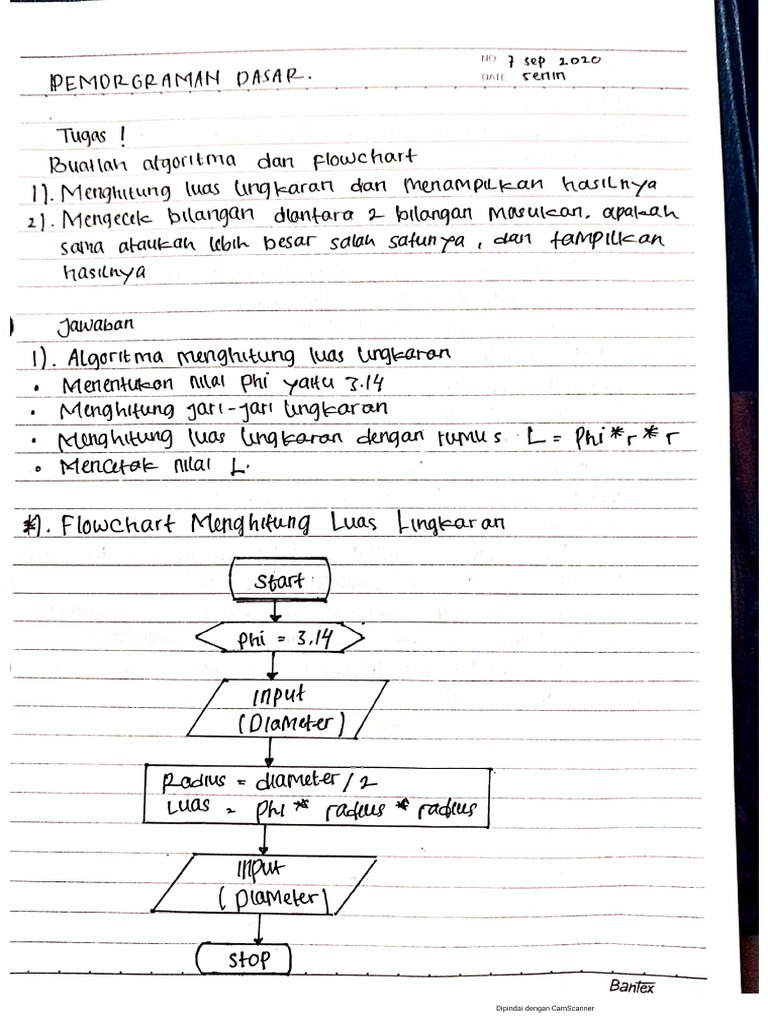 NO 7 sep 2020
PEMORGRAMAN DASAR.
DATE senin
Tugas !
Buatlah algoritma dan flowchart
1). Menghitung luas lingkaran dan menampilkan hasilnya
2). Mengecek bilangan diantara 2 bilangan masukan. apakah
sama ataukah lebih besar salah satunya, dan tampilkan
hasilnya
Jawaban
1). Algoritma menghitung luas lingkaran
• Menentukan nilai phi yaitu 3.14
• Menghitung jari-jari lingkaran
• Menghitung luas lingkaran dengan rumus L = Phi * r * r
• Mencetak nilai L.
*). Flowchart Menghitung Luas Lingkaran
Start
phi = 3.14
Input
(Diameter)
Radius = diameter / 2
Luas = phi * radius * radius
Input
(Diameter)
Stop
Bantex
Dipindai dengan CamScanner